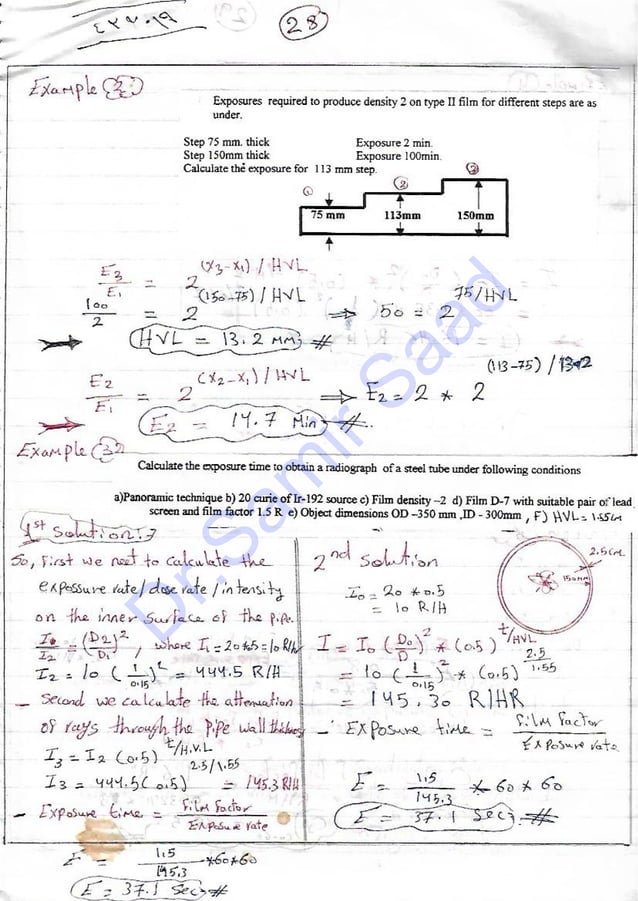 28
Example (2):
Exposures required to produce density 2 on type II film for different steps are as
under.
Step 75 mm. thick Exposure 2 min.
Step 150mm thick Exposure 100min.
Calculate the exposure for 113 mm step.
① ② ③
75 mm 113mm 150mm
E3/E1 = 2^(x3-x1)/HVL
100/2 = 2^(150-75)/HVL ⇒ 50 = 2^75/HVL
HVL = 13.2 mm #
E2/E1 = 2^(x2-x1)/HVL ⇒ E2 = 2 * 2^(113-75)/13.2
E2 = 14.7 Min #
Example (3)
Calculate the exposure time to obtain a radiograph of a steel tube under following conditions
a)Panoramic technique b) 20 curie of Ir-192 source c) Film density –2 d) Film D-7 with suitable pair of lead
screen and film factor 1.5 R e) Object dimensions OD –350 mm ,ID - 300mm , F) HVL= 1.55cm
1st Solution:
So, First we need to calculate the
exposure rate / dose rate / intensity
on the inner surface of the pipe.
I1/I2 = (D2/D1)^2 , where I1 = 20*0.5 = 10 R/H
I2 = 10 (1/0.15)^2 = 444.5 R/H
- Second we calculate the attenuation
of rays through the pipe wall thickness
I3 = I2 (0.5)^t/H.V.L
I3 = 444.5 (0.5)^2.5/1.55 = 145.3 R/H
- Exposure time = Film Factor/Exposure rate
E = 1.5/145.3 *60*60
E = 37.1 Sec #
2nd Solution
2.5cm
150mm
I0 = 20 * 0.5
= 10 R/H
I = I0 (D0/D)^2 * (0.5)^t/HVL
= 10 (1/0.15)^2 * (0.5)^2.5/1.55
= 145.30 R/HR
- Exposure time = Film Factor/Exposure rate
E = 1.5/145.3 * 60 * 60
E = 37.1 Sec #
Dr.Samir Saad